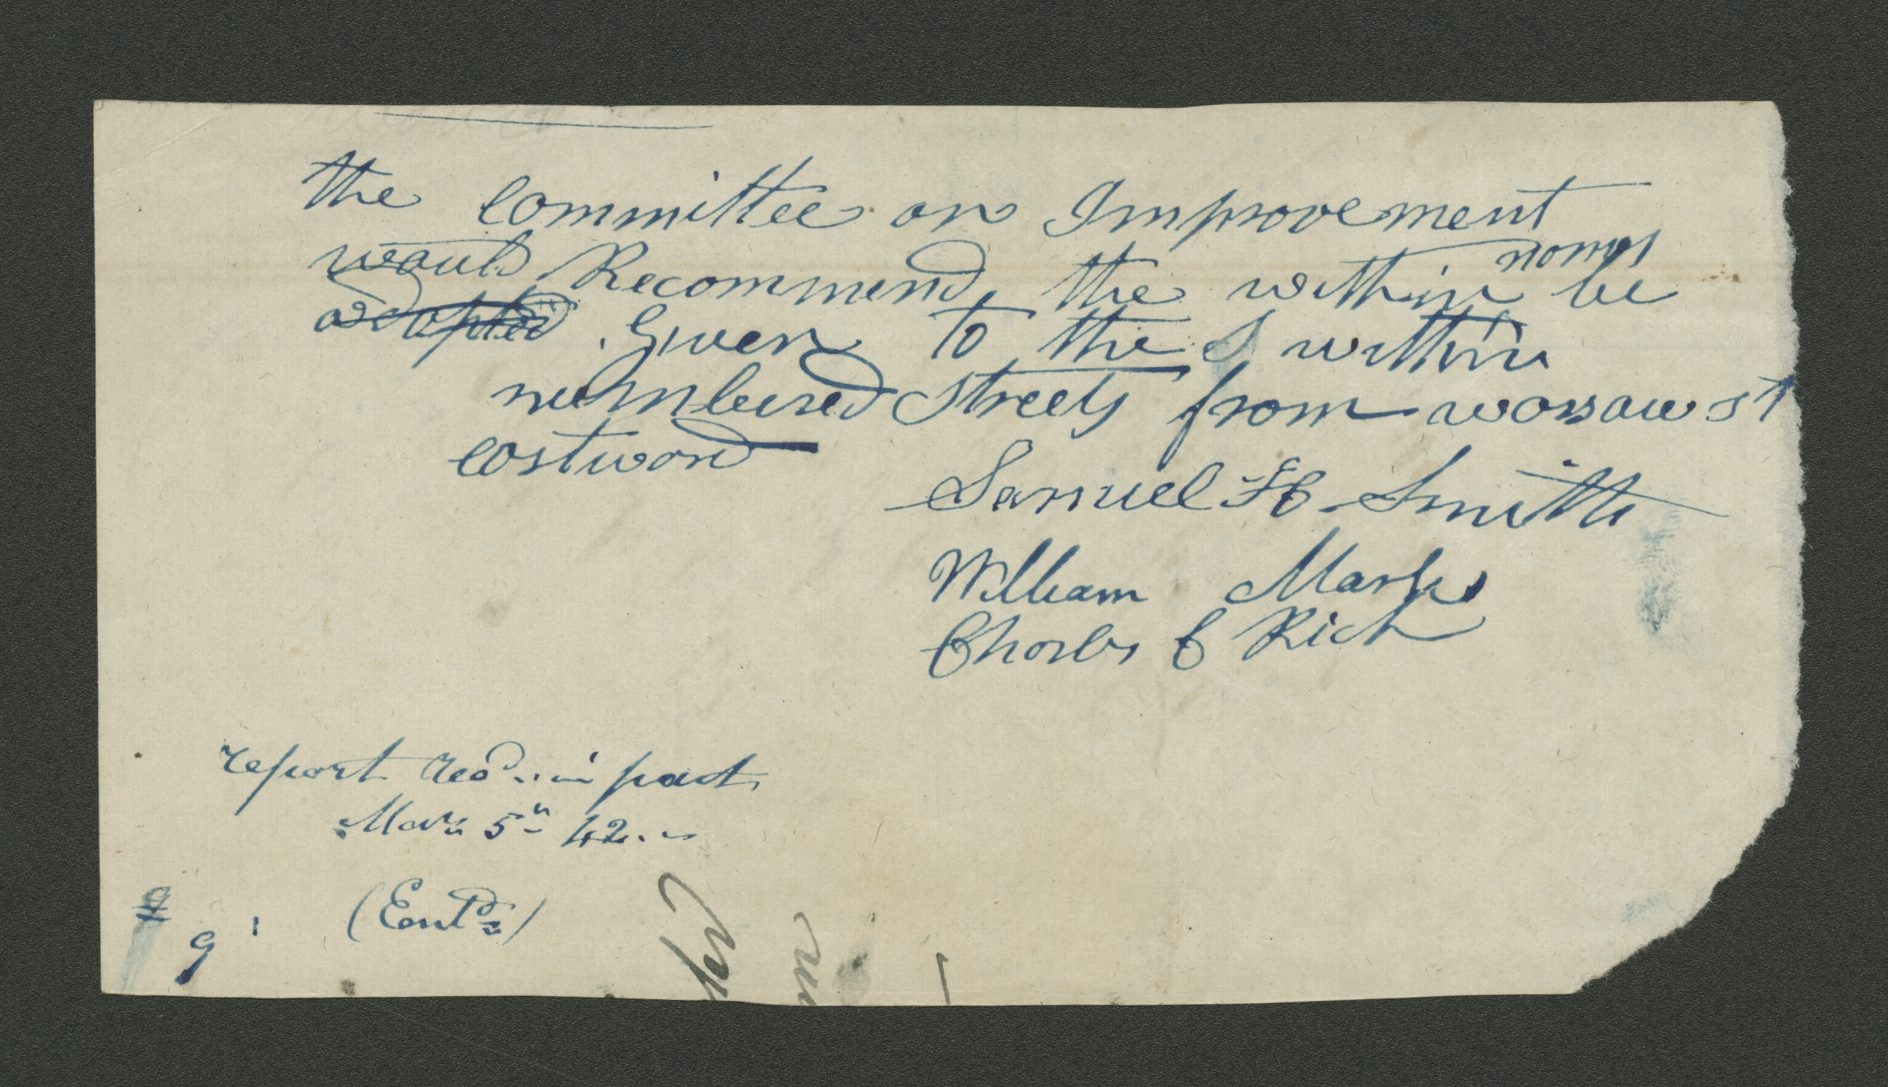 the committee on Improvement
would Recommend the within names be
adopted Given to the within
numbered streets from warsaw st
eastward
Samuel H. Smith
William Marks
Charles C Rich
report recd. in part
Mar. 5th 42.
9
(Entd.)